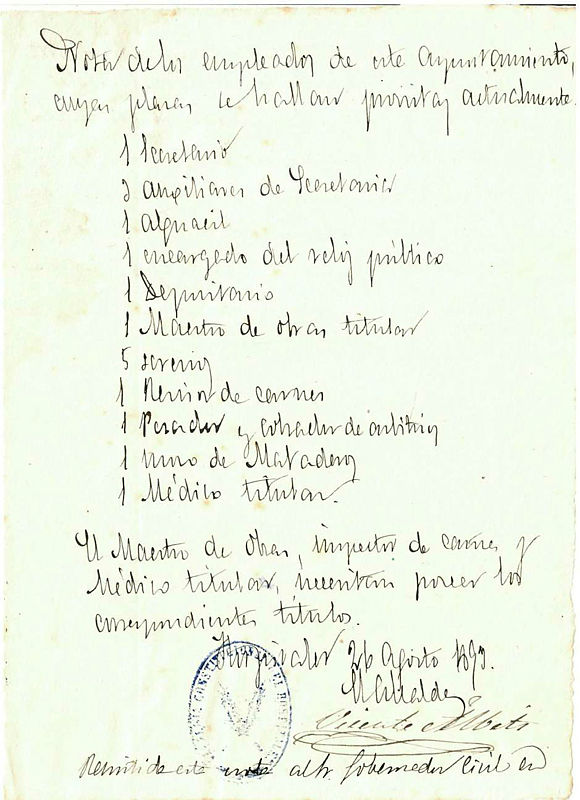 Nota de los empleados de este ayuntamiento,
cuyas plazas se hallan provistas actualmente.
1 Secretario
3 auxiliares de Secretaria
1 alguacil
1 encargado del reloj público
1 Depositario
1 Maestro de obras titular
5 serenos
1 Revisor de carnes
1 Pesador y cobrador de arbitrios
1 mozo de Matadero
1 Médico titular.
El Maestro de Obras, inspector de carnes y
Médico titular, necesitan poseer los
correspondientes títulos.
26 Agosto 1893.
El Alcalde
Vicente
Remitida esta nota al Sr. Gobernador Civil en